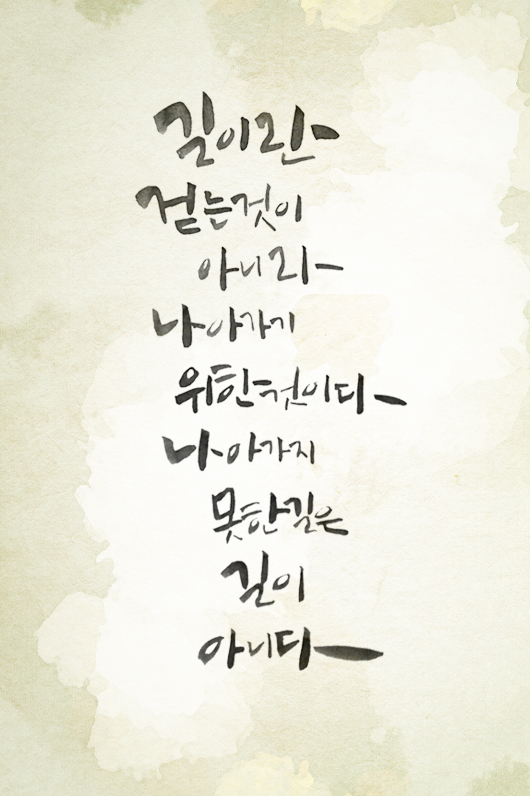 길이란
걷는것이
아니라
나아가기
위한것이다
나아가지
못한길은
길이
아니다